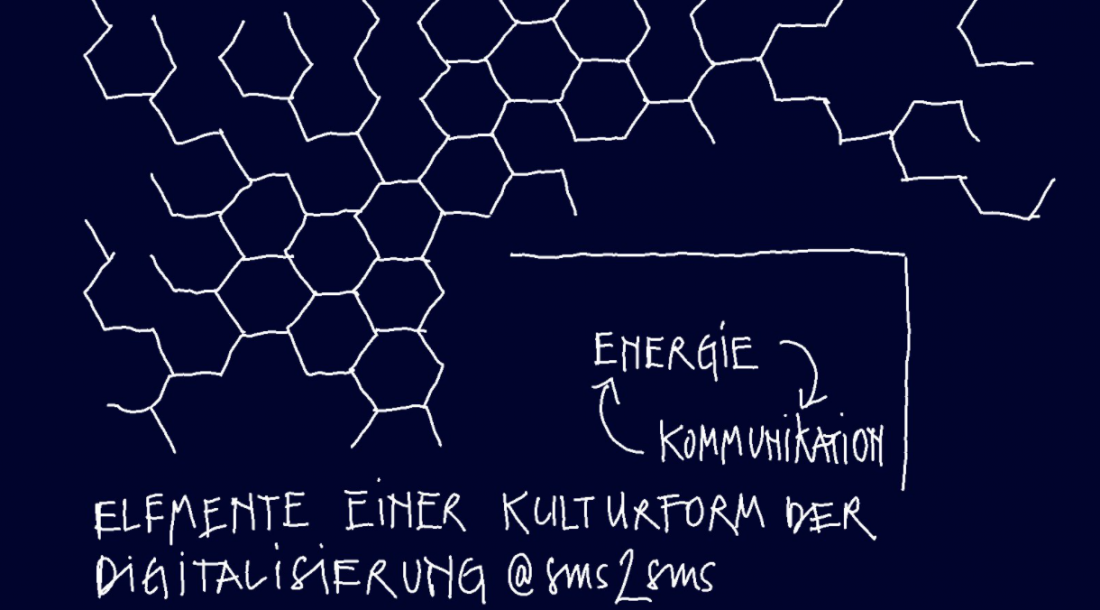 ENERGiE
KOMMUNiKATiON
ELEMENTE EiNER KULTURFORM DER
DiGiTALiSiERUNG @sms2sms